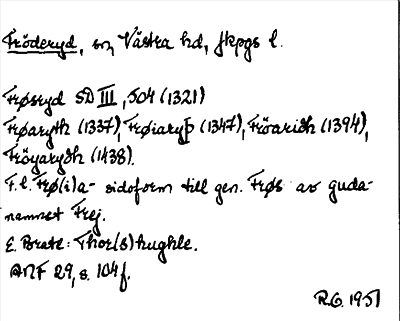 Fröderyd, sn, Västra hd, Jkpgs l.
Frøsryd SD III, 504 (1321)
Frøaryth (1337), Frøiaryþ (1347), Fröaridh (1394),
Fröyarydh (1438).
F.l. Frø(i)a- sidoform till gen. Frøs av guda-
namnet Frej.
E. Brate: Thor(s)hughle.
ANF 29, s. 104 f.
R.G. 1951